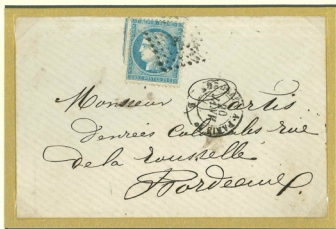 Monsieur Artis
denrées Coloniales rue
de la Rousselle
Bordeaux